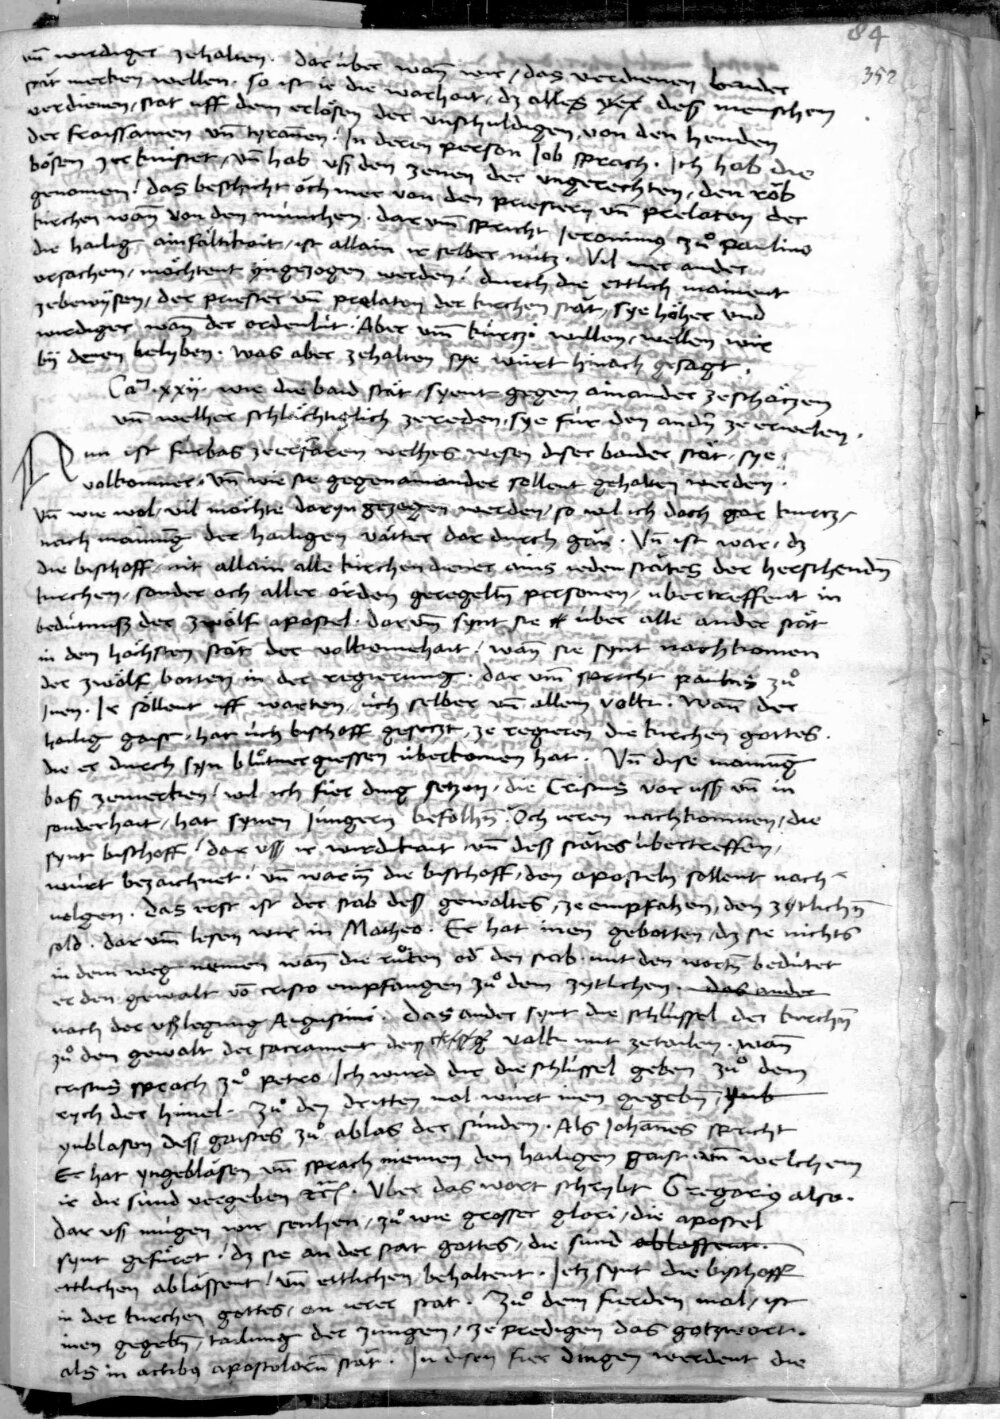 84
352
vñ wirdiger zehalten. Dar über wañ wir, das verdienen baider
stät merken wellen. So ist ie die warhait, dz alles diß menschen
verdienen, stat uff dem erlösen der unschuldigen, von den henden
der fraissamen vñ tyrañen. In deren person Job sprach. Ich hab die
bösen zerknistet, vñ hab uß den zenen der ungerechten, den rob
genomen. Das beschicht och mer von den priestern vñ prelaten der
kirchen wañ von den münchen. dar vm̃ spricht Jeronimus zů paulino
die hailig ainfältikait, ist allain ir selber nütz. Vil mer ander
vrsachen, möchtent yngezogen werden, durch die ettlich mainent
zebewysen, der priester vñ prelaten der kirchen stät, sye höher vnd
wirdiger wañ der ordenlüt. Aber vm̃ kürczi willen, wellen wir
bÿ denen belyben. Was aber zehalten sye würt hinach gesagt.
Ca. xxij. wie die baid stät, syent gegen ainander zeschätzen
vñ welher schlächtiglich zereden, sye für den andñ ze erwelen.
Nun ist fürbas zeerfaren welhes wesen diser baider stät, sye
volkomner. Vñ wie sie gegen ainander sollent gehalten werden.
Vñ wie wol vil möchte daryn gezogen werden, so wil ich doch gar kurcz,
nach mainung der hailigen vätter dar durch gän. Vñ ist war, dz
die bischoff nit allain alle kirchendiener ains ieden states der herschendñ
kirchen, sonder och aller örden geregeltñ personen, übertreffent in
bedütnuß der zwölf apostel. Dar vm̃ synt sie über alle ander stät
in dem höchsten stät der volkomehait, wañ sie synt nachkomen
der zwölf botten in der regierung. Dar vm̃ spricht paulus zů
inen. Ir söllent uff warten, üch selber vñ allem volk. Wañ der
hailig gaist, hat üch bischoff geseczt, ze regieren die kirchen gottes.
die er durch syn blůtuergiessen überkomen hat. Vñ dise mainung
baß zemerken, wil ich fier ding setzen, die Cristus vor uß vñ in
sonderhait, hat synen jüngern befolhñ. Och ieren nachkommen, die
synt bischoff, dar uß ir wirdikait vñ deß states übertreffen,
würt bezaichnet. Vñ warm̃ die bischoff, den aposteln sollent nach-
uolgen. Das erst ist der stab deß gewaltes, ze empfahen, den zytlichñ
sold. Dar vm̃ lesen wir in Matheo. Er hat inen gebotten, dz sie nichts
in dem weg nemen wañ die růten od den stab. mit den wortñ bedütet
er den gewalt võ cristo empfangen zů dem zytlichen. das ander
nach der vßlegung Augustini. Das ander synt die schlüssel der kirchñ
zů den gewalt der sacrament dem volk mit zetailen. Wañ
cristus sprach zů petro, Ich würd dir die schlüssel geben zů dem
rych der himel. Zů den dritten mal würt inen gegebñ,
ynblasen deß gaistes zů ablas der sünden. Als Johannes spricht
Er hat yngeblasen vñ sprach niemen den hailigen gaist vñ welchem
ir die sünd vergeben. Vber das wort schrybt Gregorius also.
dar uß mügen wir senhen, zů wie grosser glori, die apostel
synt gefüret. dz sie an der stat gottes, die sünd ablassent.
ettlichen ablassent, vñ ettlichen behaltent. Jetz synt die bischoff
in der kirchen gottes, an ierer stat. Zů dem fierden mal, ist
inen gegebñ, tailung der zungen, ze predigen das gotzwort.
als in actibus apostolorũ stät. In disen fier dingen werdent die